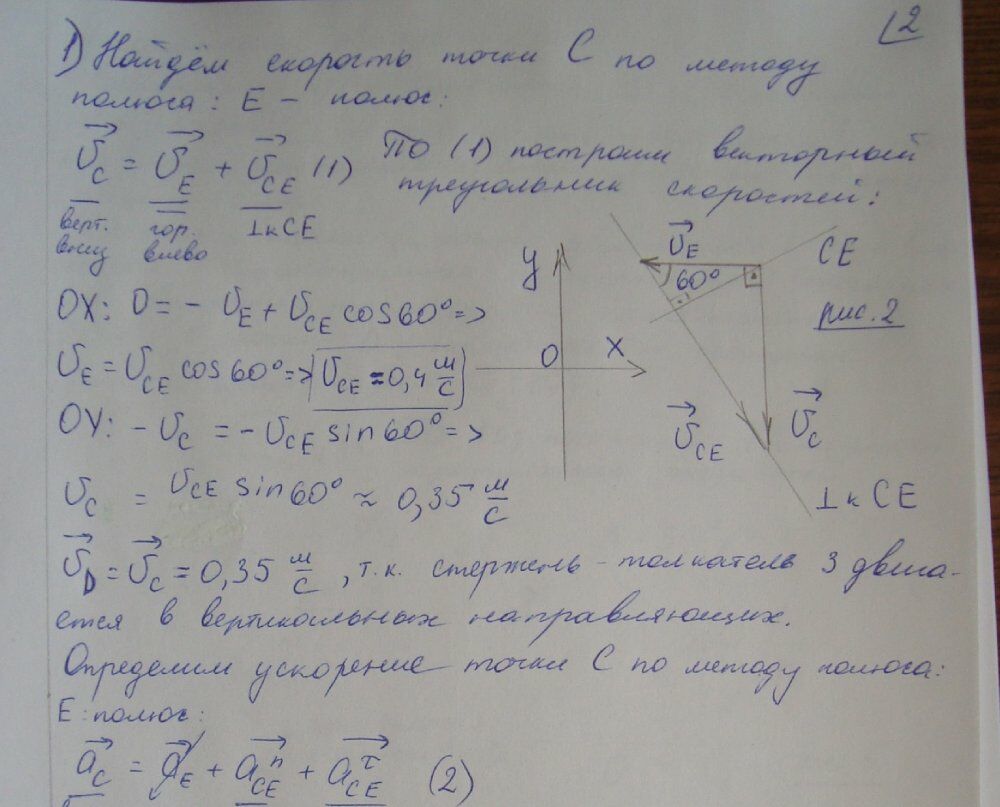 2
1) Найдём скорость точки C по методу
полюса: E – полюс:
V⃗_C = V⃗_E + V⃗_CE (1) ПО (1) построим векторный
треугольник скоростей:
верт. гор. ⊥ к CE
вниз влево
V⃗_E CE
y 60°
OX: 0 = - V_E + V_CE cos60° => рис. 2
V_E = V_CE cos60° => V_CE = 0,4 м/с 0 X
OY: - V_C = - V_CE sin60° => V⃗_CE V⃗_C
V_C = V_CE sin60° ≈ 0,35 м/с ⊥ к CE
V⃗_D = V⃗_C = 0,35 м/с, т.к. стержень-толкатель 3 двига-
ется в вертикальных направляющих.
Определим ускорение точки C по методу полюса:
E: полюс:
a⃗_C = a⃗_E + a⃗_CE^n + a⃗_CE^τ (2)